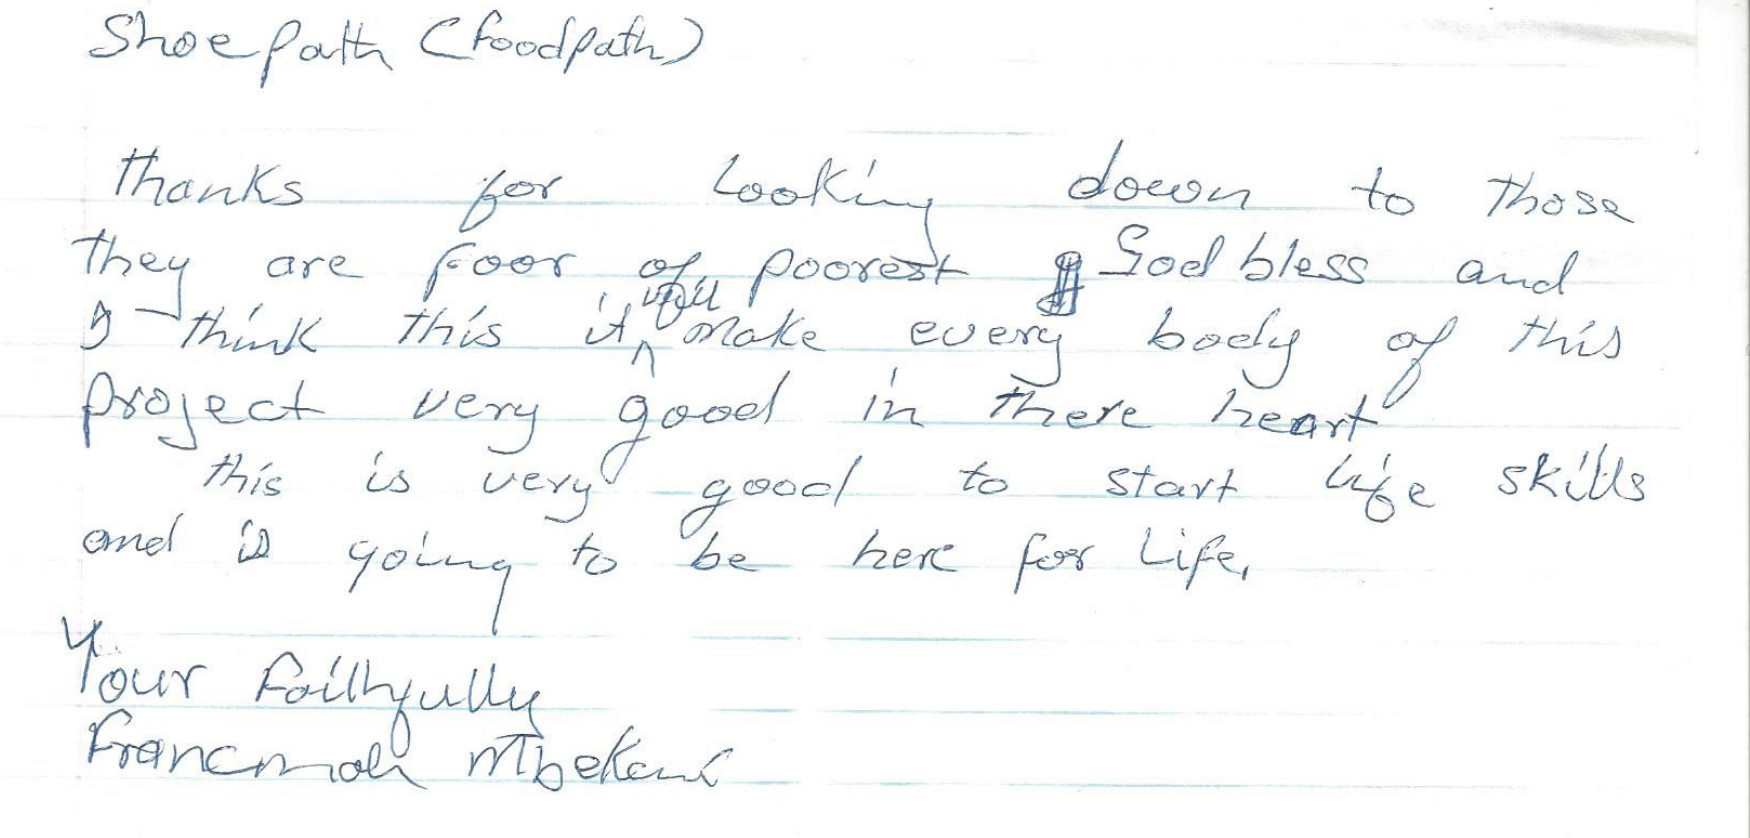 Shoepath (foodpath)
Thanks for looking down to those
they are foor of poorest God bless and
I think this it will make every body of this
project very good in there heart
this is very good to start life skills
and is going to be here for Life,
Your faithfully